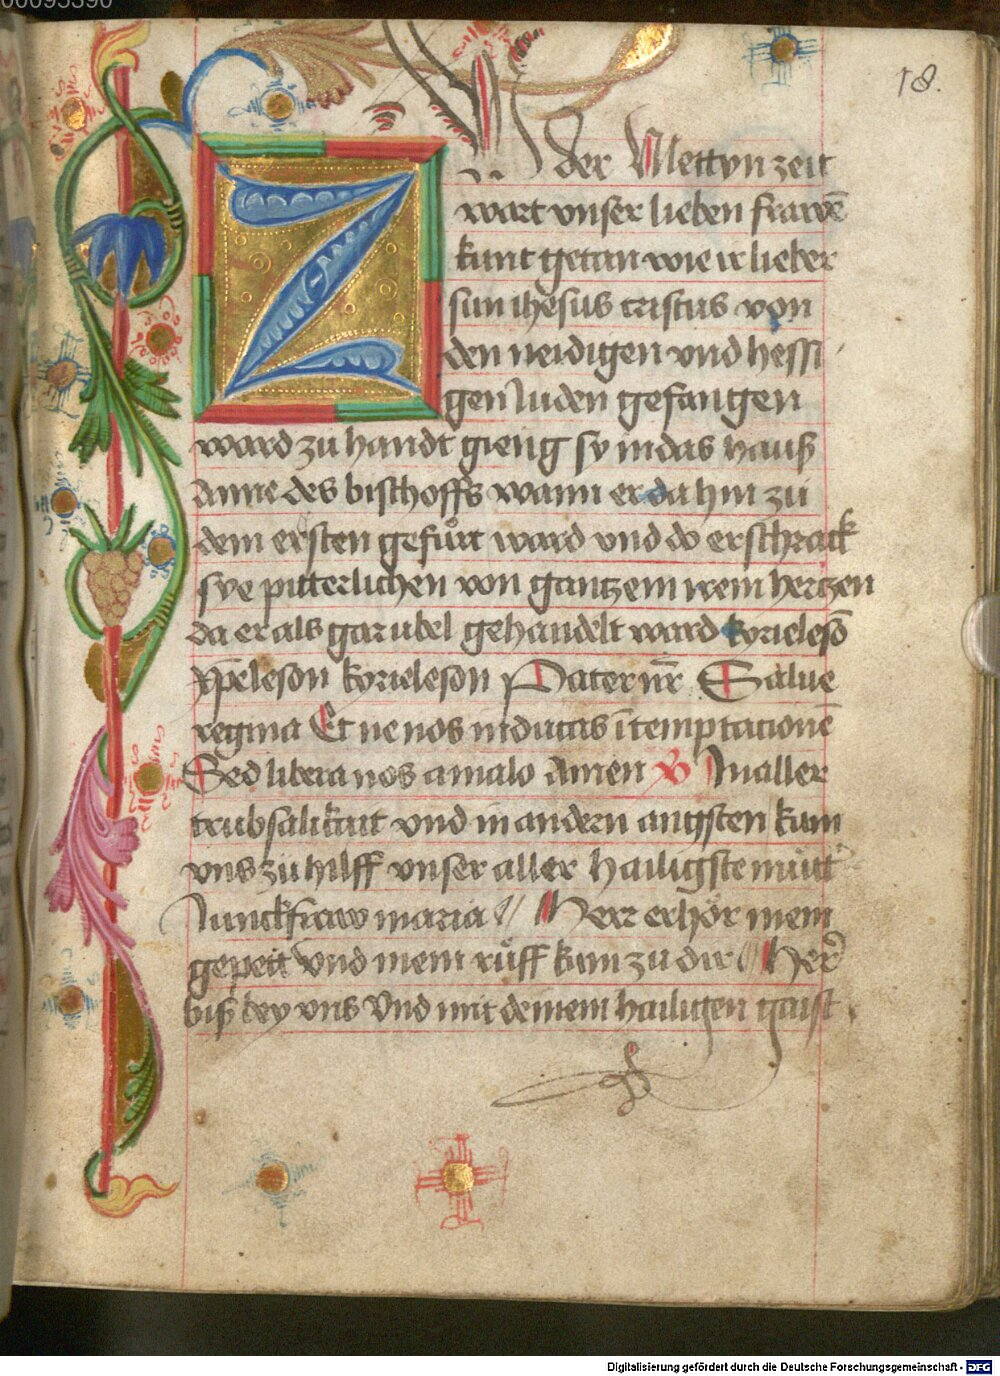 00095390
18.
Zů der Mettyn zeit
wart vnser lieben frawē
kunt getan wie ir lieber
sun ihesus cristus von
den neidigen vnd hessi
gen Juden gefangen
ward zu handt gieng sy in das hauß
Anne des bischoffs wann er da hin zu
dem ersten gefůrt ward vnd do erschrack
sye pitterlichen von gantzem irem hertzen
da er als gar ubel gehandelt ward kyrieleſō
xp̄eleson kyrieleson Pater nr̄ Salue
regina Et ne nos inducas ī temptacionē
Sed libera nos a malo Amen V In aller
trubsalikait vnd in andern angsten kum
vns zu hilff vnser aller hailigste mutt
Junckfraw maria Herr erhör mein
gepett Vnd mein růff kum zu dir Her
biß bey vns Vnd mit deinem hailigen gaist
Digitalisierung gefördert durch die Deutsche Forschungsgemeinschaft - DFG